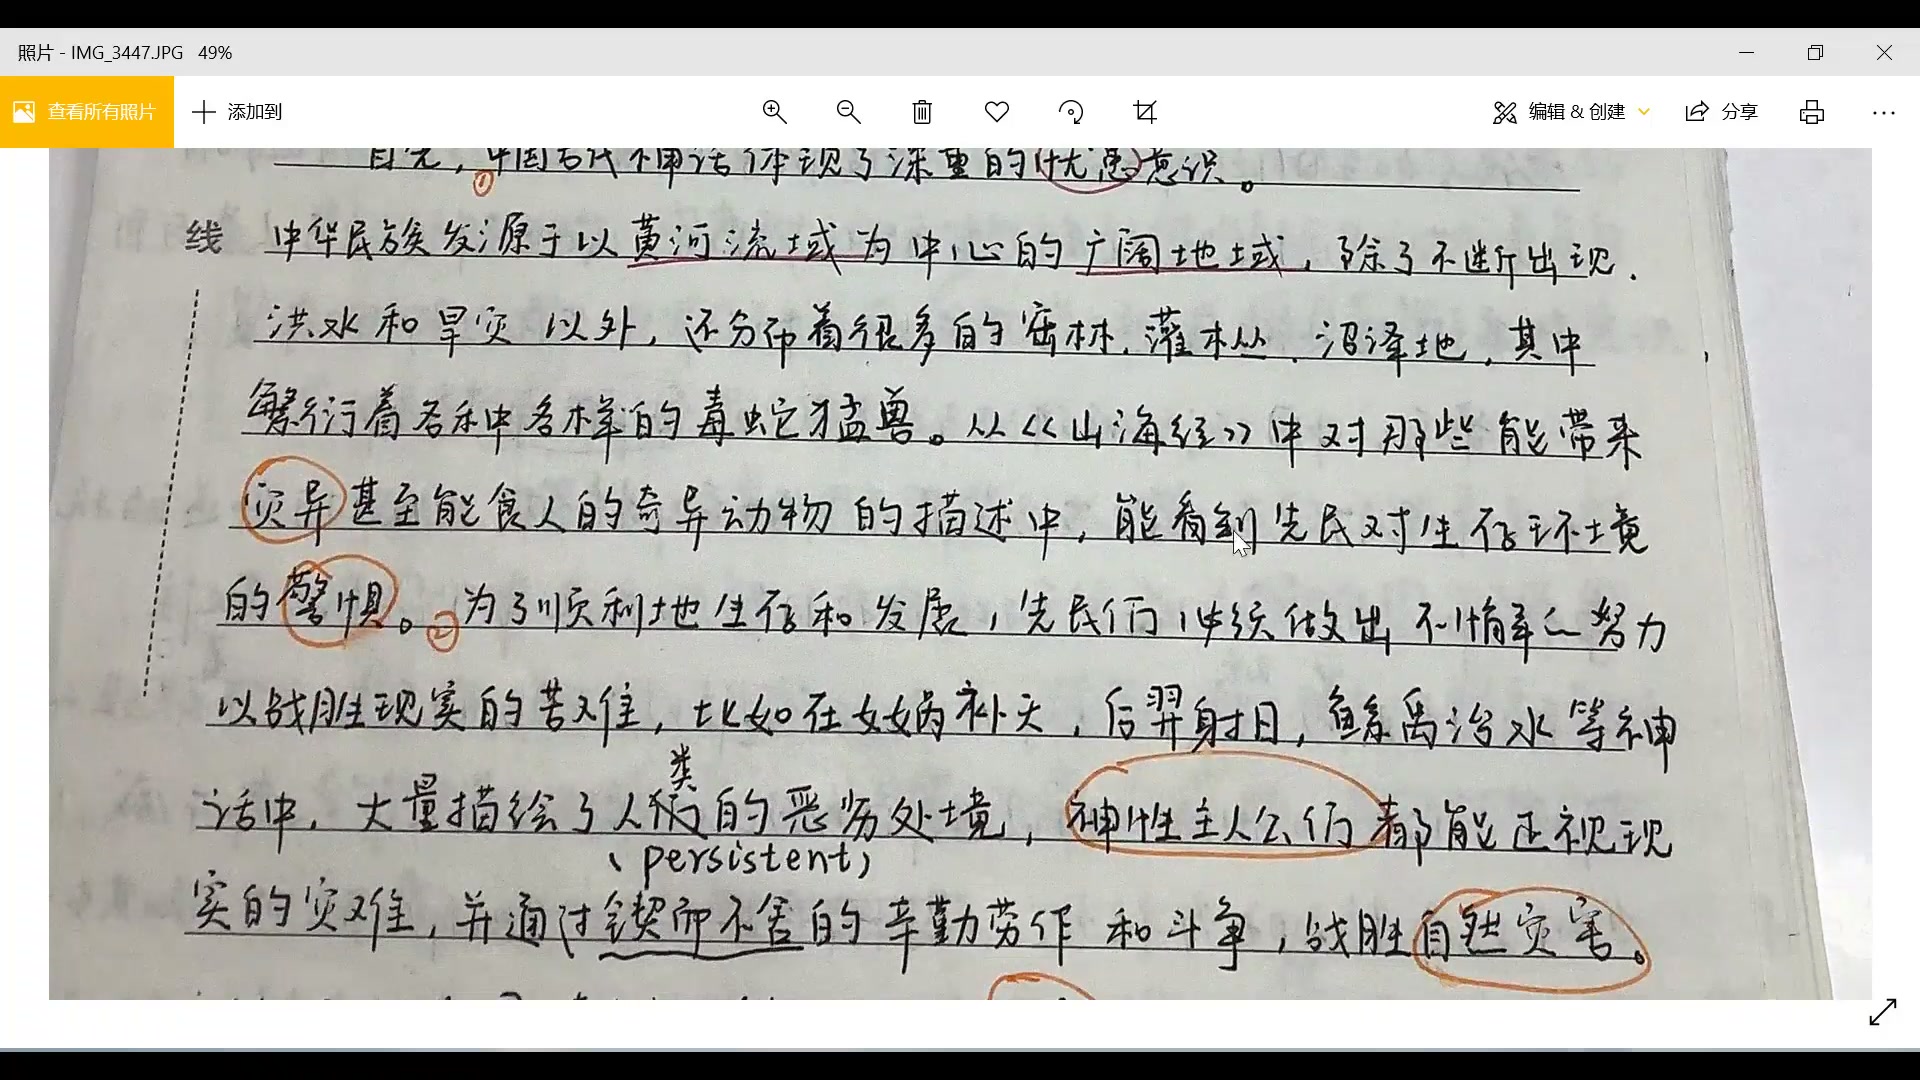 照片 - IMG_3447.JPG 49%
查看所有照片 添加到 编辑 & 创建 分享
首先，中国古代神话体现了深重的忧患意识。
①
线 中华民族发源于以黄河流域为中心的广阔地域，除了不断出现
洪水和旱灾以外，还分布着很多的密林、灌木丛、沼泽地，其中
繁衍着各种各样的毒蛇猛兽。从《山海经》中对那些能带来
灾异甚至能食人的奇异动物的描述中，能看到先民对生存环境
的警惧。②为了顺利地生存和发展，先民们继续做出不懈的努力
以战胜现实的苦难，比如在女娲补天，后羿射日，鲧禹治水等神
类
话中，大量描绘了人们的恶劣处境，神性主人公们都能正视现
(persistent)
实的灾难，并通过锲而不舍的辛勤劳作和斗争，战胜自然灾害。